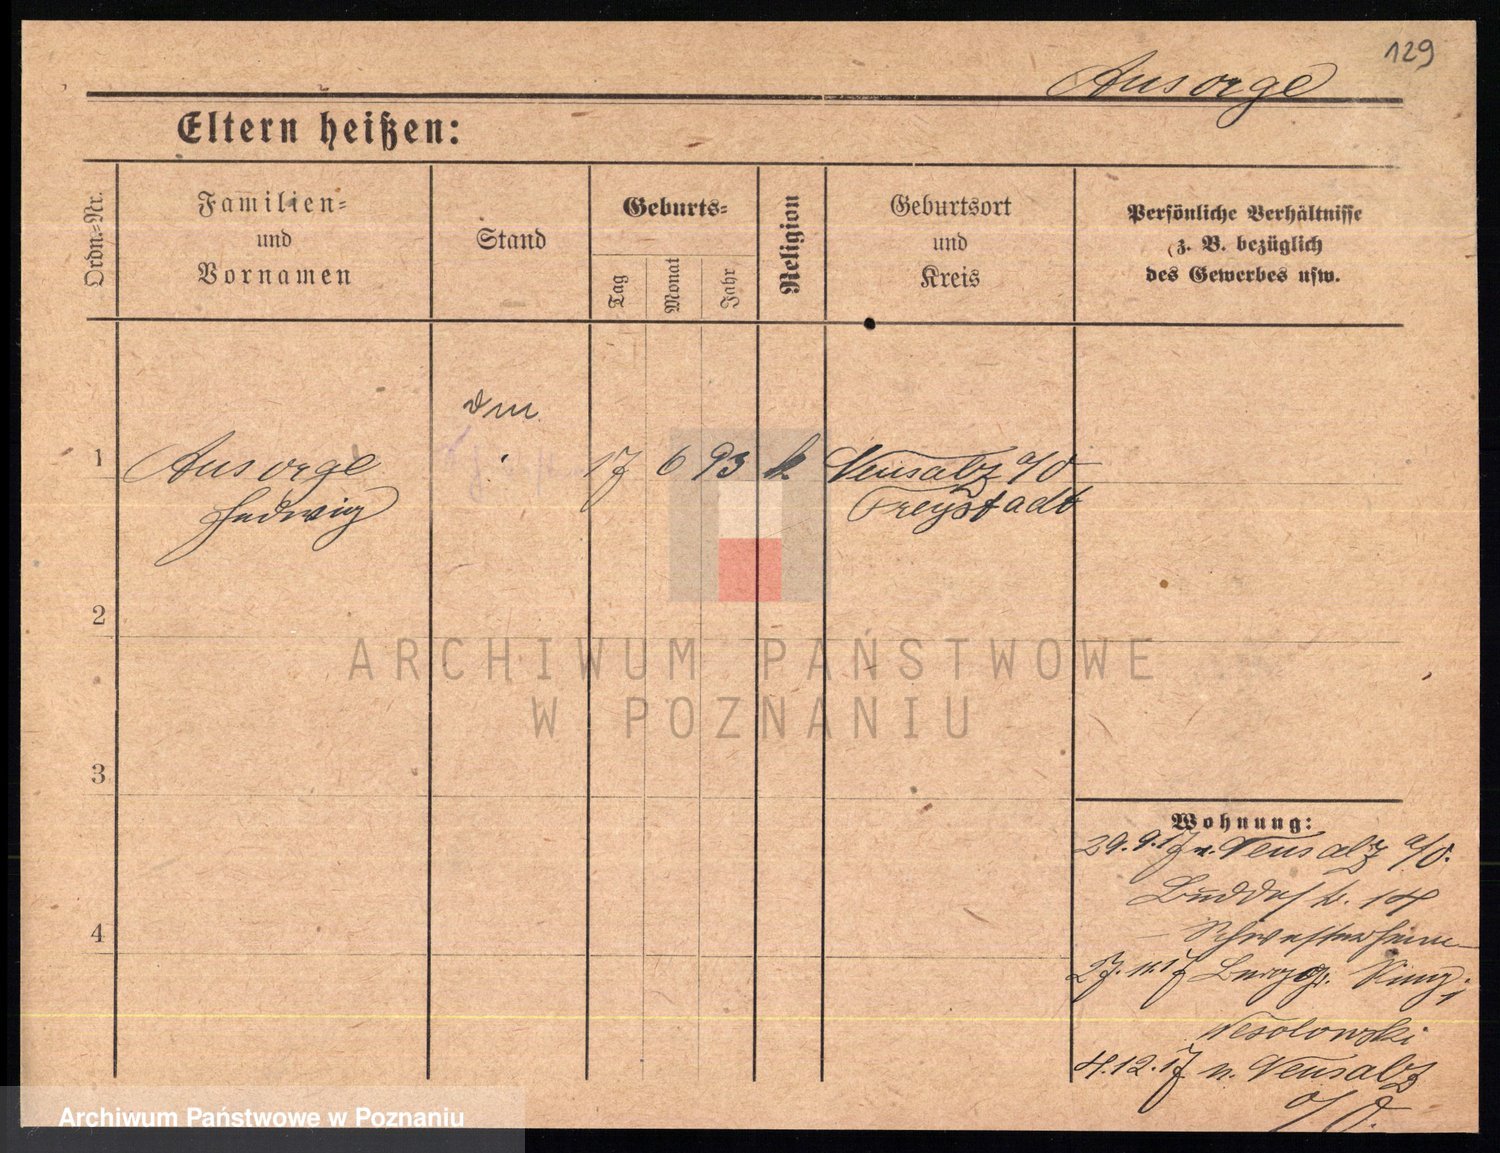 129
Ansorge
Eltern heißen:
Ordn.-Nr.
Familien-
und
Vornamen
Stand
Geburts-
Tag
Monat
Jahr
Religion
Geburtsort
und
Kreis
Persönliche Verhältnisse
(z. B. bezüglich
des Gewerbes usw.
1
Ansorge
Hedwig
17
6
93
k
Neusalz a/O
Freystadt
2
3
4
Wohnung:
29.9.17 v. Neusalz a/O.
14
Schwesternheim
27.11.17
4.12.17 n. Neusalz
a/O.
ARCHIWUM PAŃSTWOWE
W POZNANIU
Archiwum Państwowe w Poznaniu